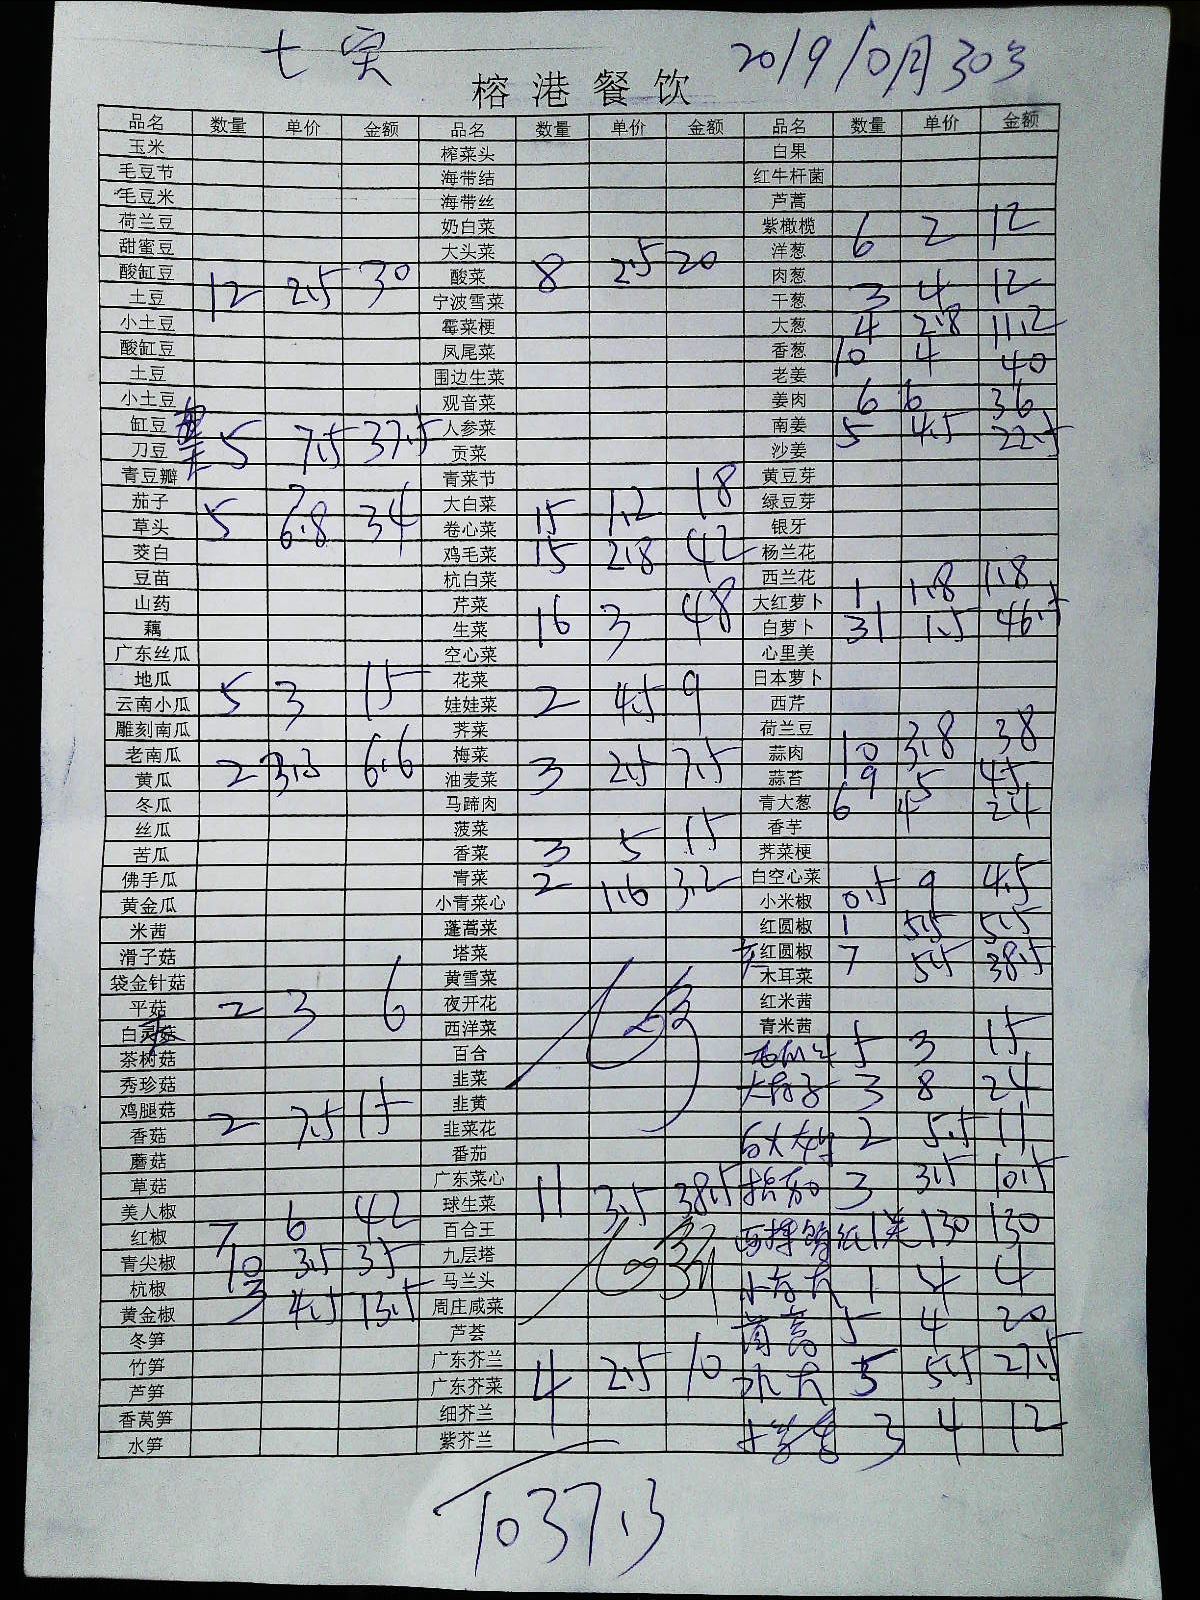 七 宾 2019 10月30号
榕港餐饮
品名 数量 单价 金额 品名 数量 单价 金额 品名 数量 单价 金额
玉米 榨菜头 白果
毛豆节 海带结 红牛杆菌
毛豆米 海带丝 芦蒿
荷兰豆 奶白菜 紫橄榄 6 2 12
甜蜜豆 大头菜 洋葱
酸缸豆 12 2.5 30 酸菜 8 2.5 20 肉葱
土豆 宁波雪菜 干葱 3 4 12
小土豆 霉菜梗 大葱 4 2.8 11.2
酸缸豆 凤尾菜 香葱 10 4 40
土豆 围边生菜 老姜
小土豆 观音菜 姜肉 6 6 36
缸豆 人参菜 南姜 5 4.5 22.5
刀豆 5 7.5 37.5 贡菜 沙姜
青豆瓣 青菜节 黄豆芽
茄子 大白菜 绿豆芽
草头 5 6.8 34 卷心菜 15 1.2 18 银牙
茭白 鸡毛菜 15 2.8 42 杨兰花
豆苗 杭白菜 西兰花
山药 芹菜 大红萝卜 1 1.8 1.8
藕 生菜 16 3 48 白萝卜 31 1.5 46.5
广东丝瓜 空心菜 心里美
地瓜 花菜 日本萝卜
云南小瓜 5 3 15 娃娃菜 2 4.5 9 西芹
雕刻南瓜 荠菜 荷兰豆
老南瓜 梅菜 蒜肉 10 3.8 38
黄瓜 2 3.3 6.6 油麦菜 3 2.5 7.5 蒜苔 9 5 45
冬瓜 马蹄肉 青大葱 6 4 24
丝瓜 菠菜 香芋
苦瓜 香菜 3 5 15 荠菜梗
佛手瓜 青菜 2 1.6 3.2 白空心菜
黄金瓜 小青菜心 小米椒 0.5 9 4.5
米茜 蓬蒿菜 红圆椒 1 5.5 5.5
滑子菇 塔菜 红圆椒 7 5.5 38.5
袋金针菇 黄雪菜 木耳菜
平菇 2 3 6 夜开花 红米茜
白灵菇 西洋菜 青米茜
茶树菇 百合 5 3 15
秀珍菇 韭菜 3 8 24
鸡腿菇 韭黄
香菇 2 7.5 15 韭菜花 2 5.5 11
蘑菇 番茄
草菇 广东菜心 11 3.5 38.5 3 3.5 10.5
美人椒 球生菜
红椒 7 6 42 百合王 130 130
青尖椒 10 3.5 35 九层塔
杭椒 马兰头 1 4 4
黄金椒 3 4.5 13.5 周庄咸菜
冬笋 芦荟 茼蒿 5 4 20
竹笋 广东芥兰
芦笋 广东芥菜 4 2.5 10 5 5.5 27.5
香莴笋 细芥兰
水笋 紫芥兰 3 4 12
1037.3